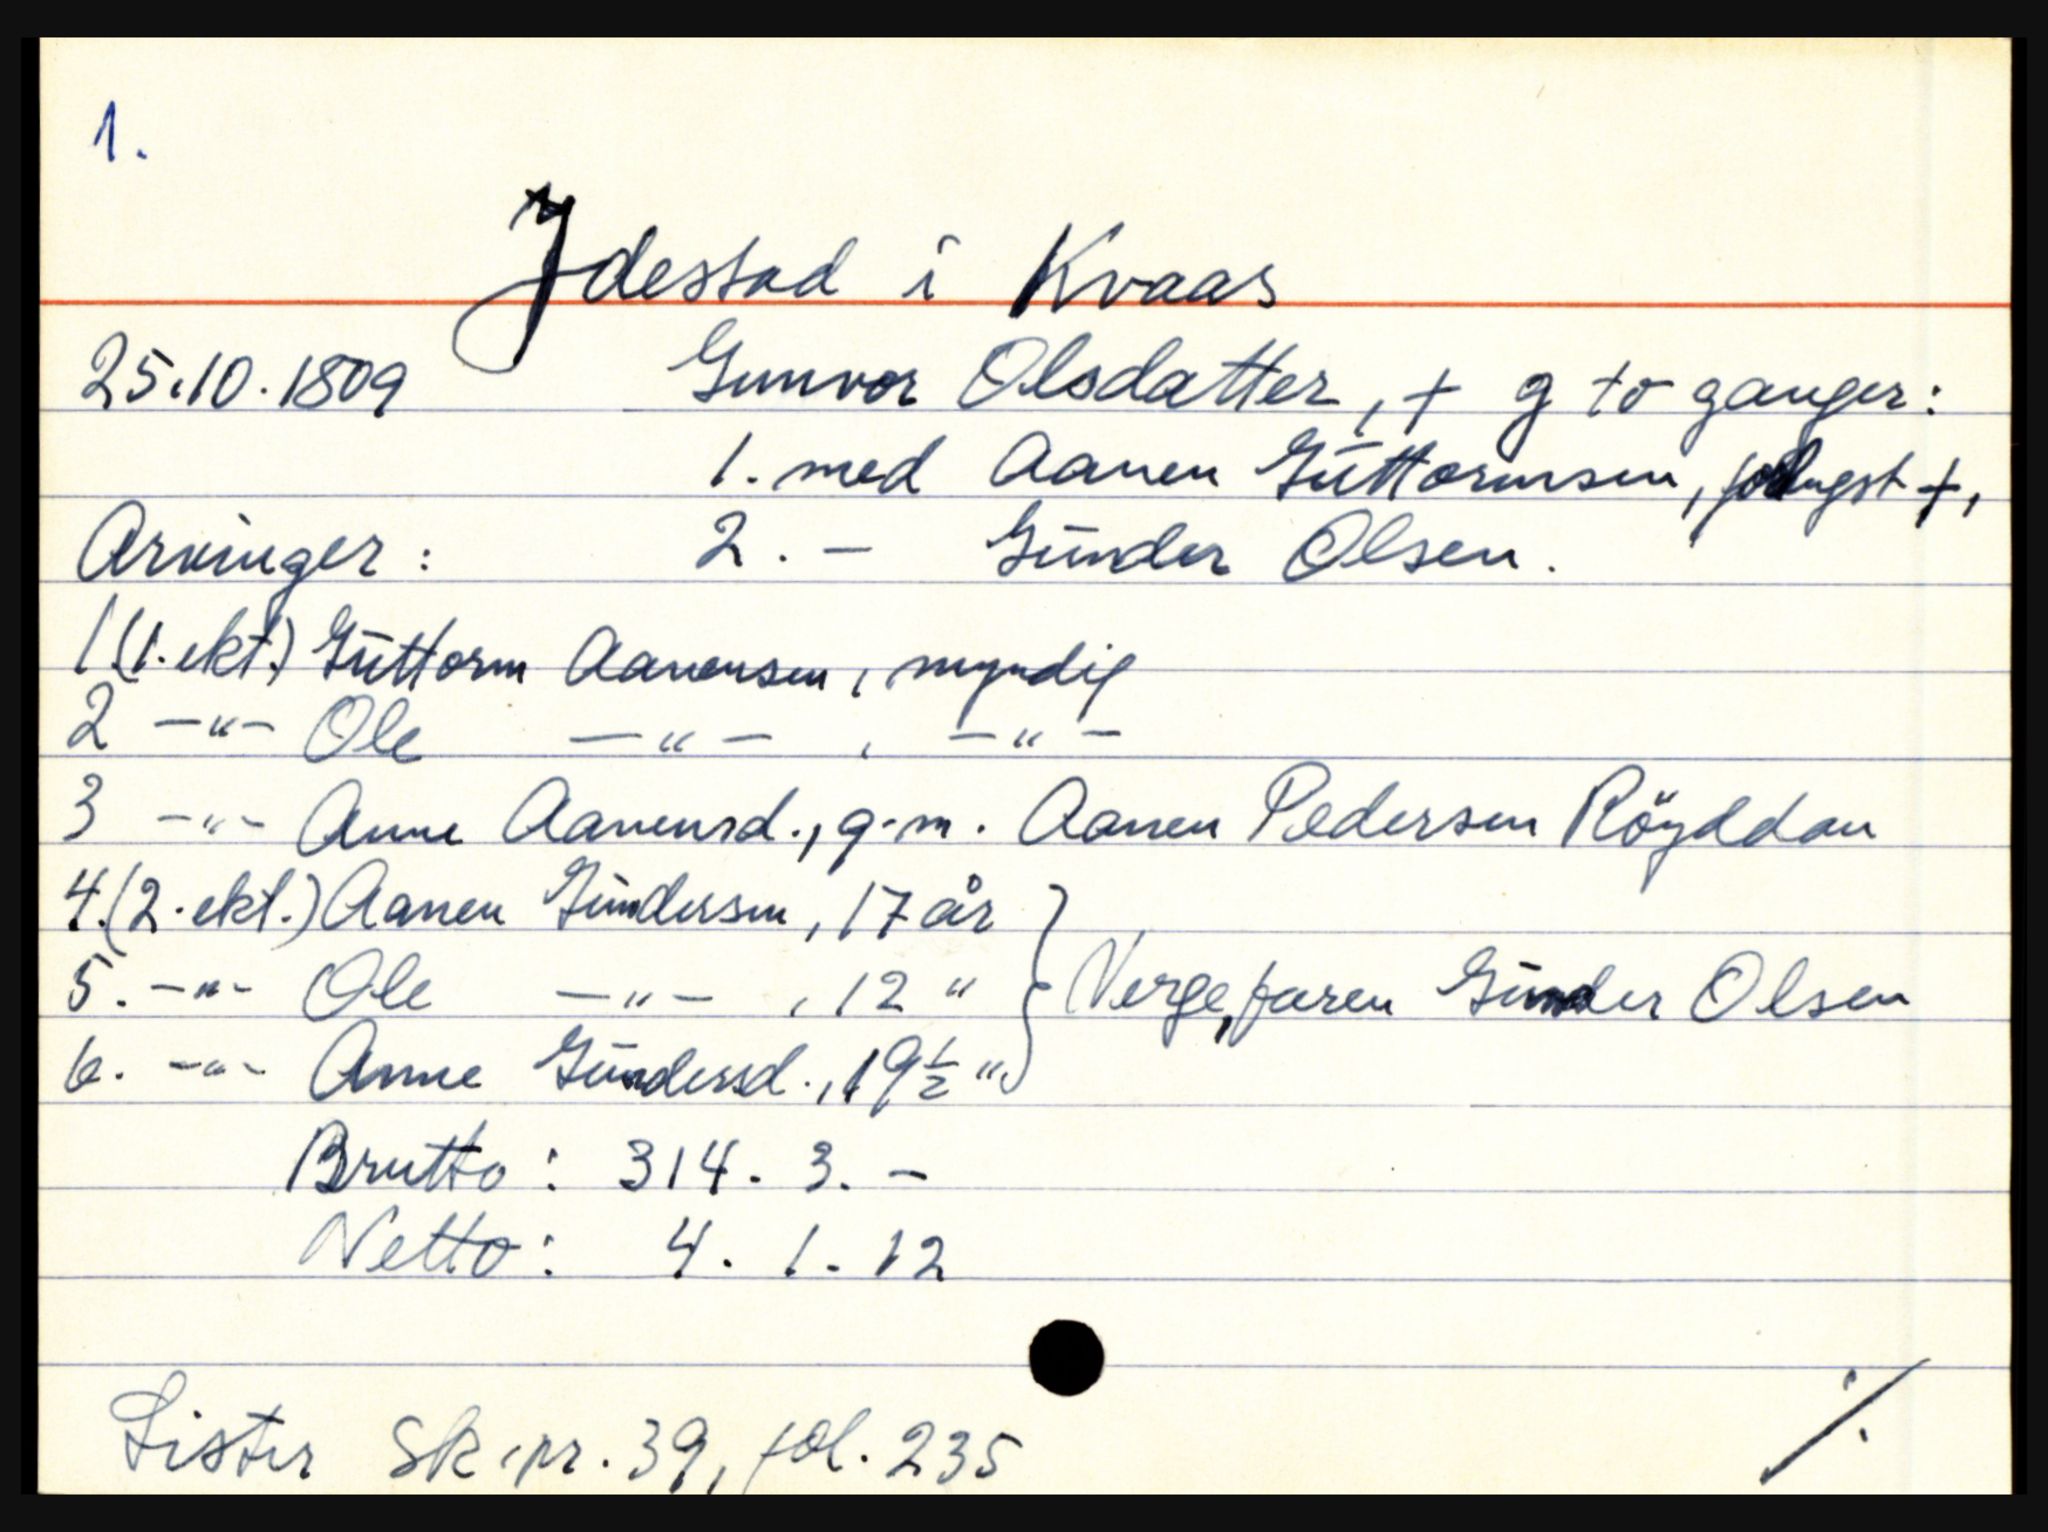 1.
Ydestad i Kvaas
25.10.1809 Gunvor Olsdatter, + g to ganger:
1. med Aanen Guttormsen, forlengst +,
Arvinger: 2. — Gunder Olsen.
1 (1. ekt.) Guttorm Aanensen, myndig
2 —"— Ole —"—, —"—
3 —"— Anne Aanensd., g.m. Aanen Pedersen Röyddan
4. (2. ekt.) Aanen Gundersen, 17 år
5. —"— Ole —"—, 12 " } Verge, faren Gunder Olsen
6. —"— Anne Gundersd., 19½ "
Brutto: 314. 3. —
Netto: 4. 1. 12
Lister sk.pr. 39, fol. 235
./.